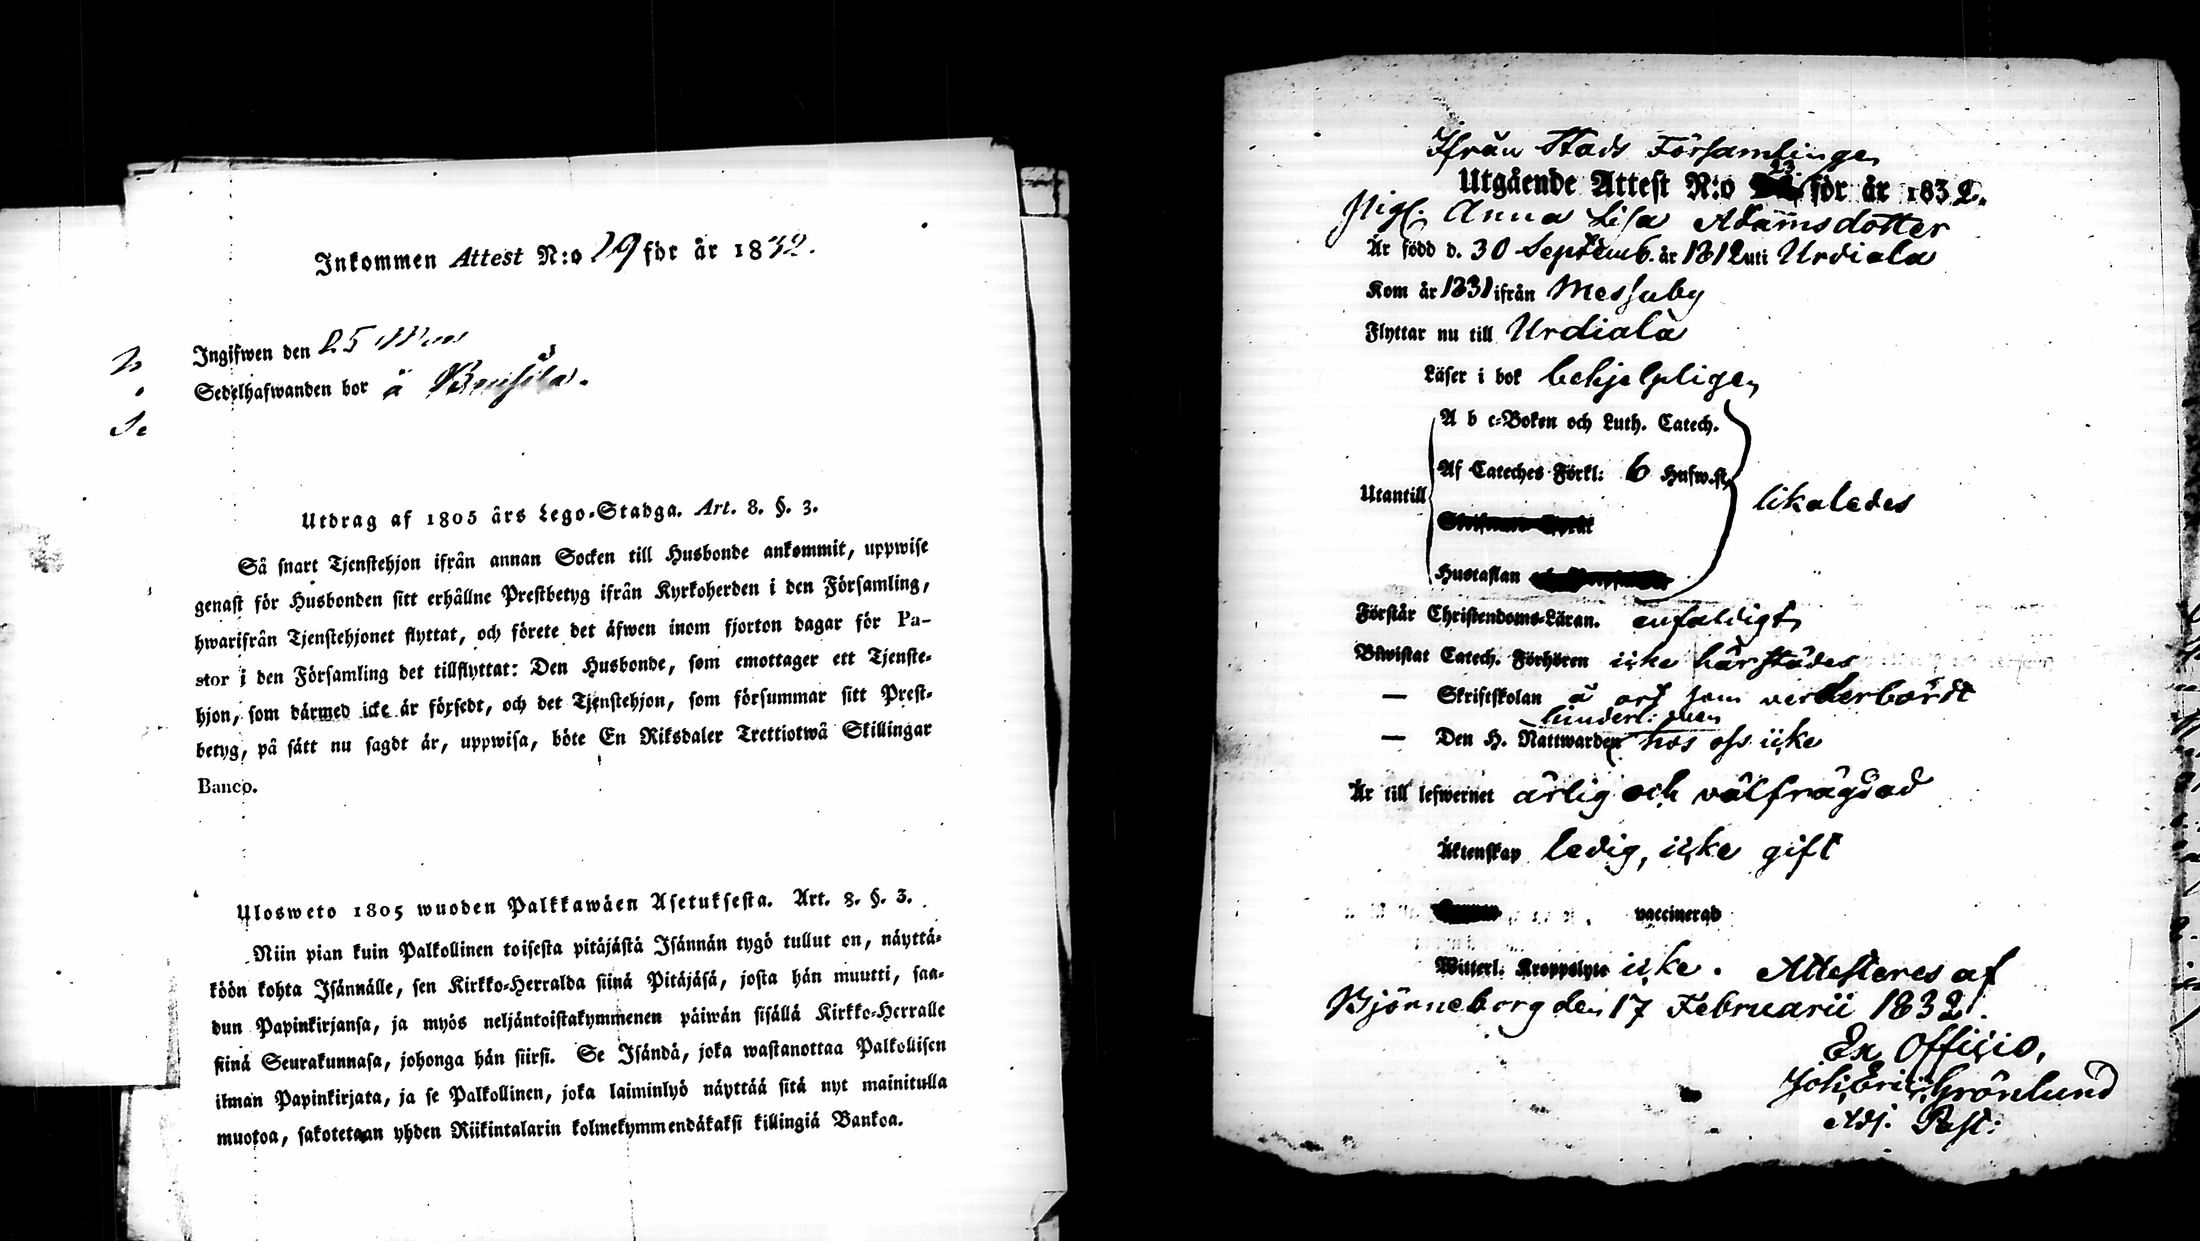 Inkommen Attest N:o 29 för år 1832.
Ingifwen den 25
Sedelhafwanden bor å
Utdrag af 1805 års Lego-Stadga. Art. 8. §. 3.
Så snart Tjenstehjon ifrån annan Socken till Husbonde ankommit, uppwise
genast för Husbonden sitt erhållne Prestbetyg ifrån Kyrkoherden i den Församling,
hwarifrån Tjenstehjonet flyttat, och förete det äfwen inom fjorton dagar för Pa-
stor i den Församling det tillflyttat: Den Husbonde, som emottager ett Tjenste-
hjon, som därmed icke är försedt, och det Tjenstehjon, som försummar sitt Prest-
betyg, på sätt nu sagdt är, uppwisa, böte En Riksdaler Trettiotwå Skillingar
Banco.
Ulosweto 1805 wuoden Palkkawäen Asetuksesta. Art. 8. §. 3.
Niin pian kuin Palkollinen toisesta pitäjästä Isännän tygö tullut on, näyttä-
köön kohta Isännälle, sen Kirkko-Herralda siinä Pitäjäsä, josta hän muutti, saa-
dun Papinkirjansa, ja myös neljäntoistakymmenen päiwän sisällä Kirkko-Herralle
siinä Seurakunnasa, johonga hän siirsi. Se Isändä, joka wastanottaa Palkollisen
ilman Papinkirjata, ja se Palkollinen, joka laiminlyö näyttää sitä nyt mainitulla
muotoa, sakotetaan yhden Riikintalarin kolmekymmendäkaksi killingiä Bankoa.
Ifrån Stads Församlingen
Utgående Attest N:o 23 för år 1832.
Pig. Anna Lisa Adamsdotter
Är född d. 30 Septemb. år 1812 uti Urdiala
Kom år 1831 ifrån Messuby
Flyttar nu till Urdiala
Läser i bok behjelpligen
A b c-Boken och Luth. Catech.
Af Cateches Förkl: 6 Hufw.st.
Utantill likaledes
Hustaflan
Förstår Christendoms-Läran. enfaldigt
Biwistat Catech. Förhören icke härstädes
— Skriftskolan å ort som wederbördt
— Den H. Nattwarden hos oss icke
Är till lefwernet ärlig och välfrägdad
Äktenskap ledig, icke gift
vaccinerad
Witterl. Kroppslyte icke. Attesteras af
Björneborg den 17 Februarii 1832.
Ex Officio,
Joh: Eric Grönlund
Adj. Past: